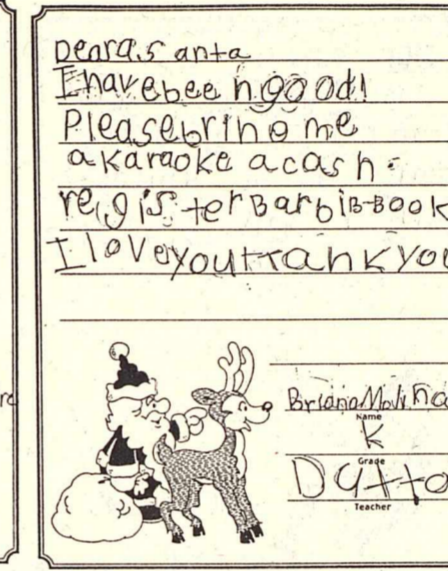 Deara,santa
I havebee n good!
Pleasebring me
a karaoke a cash-
register Barbie BOOK
I loveyou thank you
Briana Molina
Name
K
Grade
Teacher